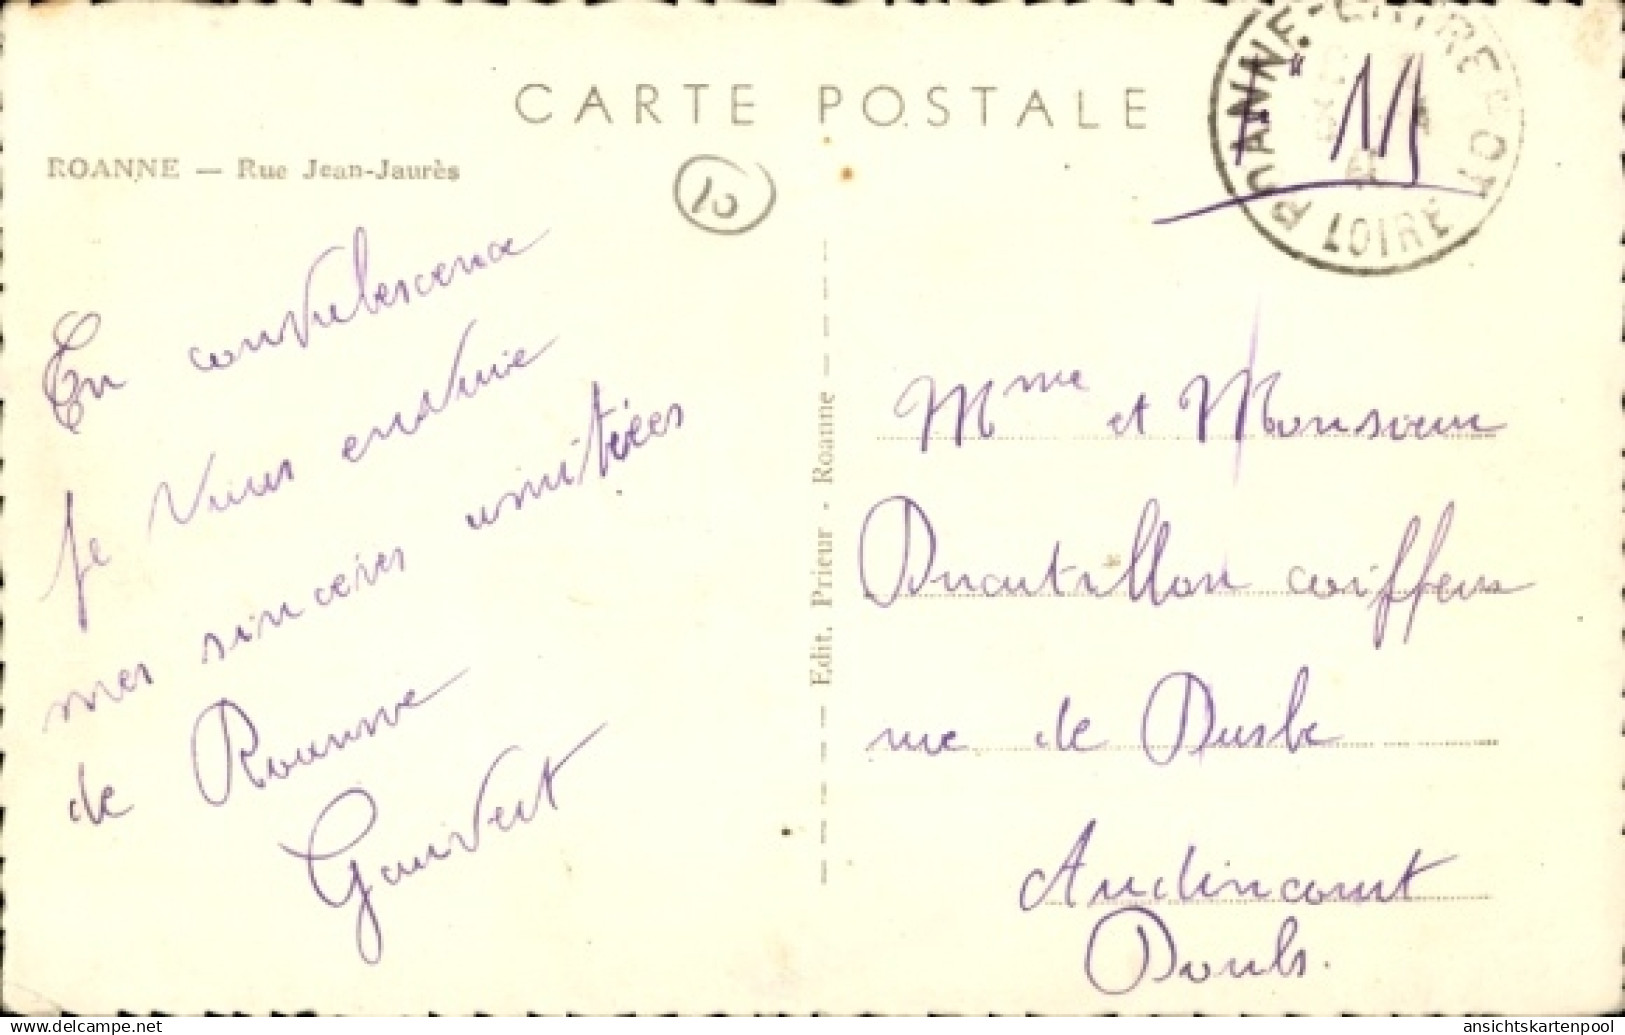 CARTE POSTALE
ROANNE — Rue Jean-Jaurès
10
ROANNE-ENTREPOT
LOIRE
"FM
En convalescence
je vous envoie
mes sincères amitiées
de Roanne
Gauvert
Edit. Prieur - Roanne
Mme et Monsieur
coiffeur
rue de
Audincourt
Doubs.
www.delcampe.net
ansichtskartenpool